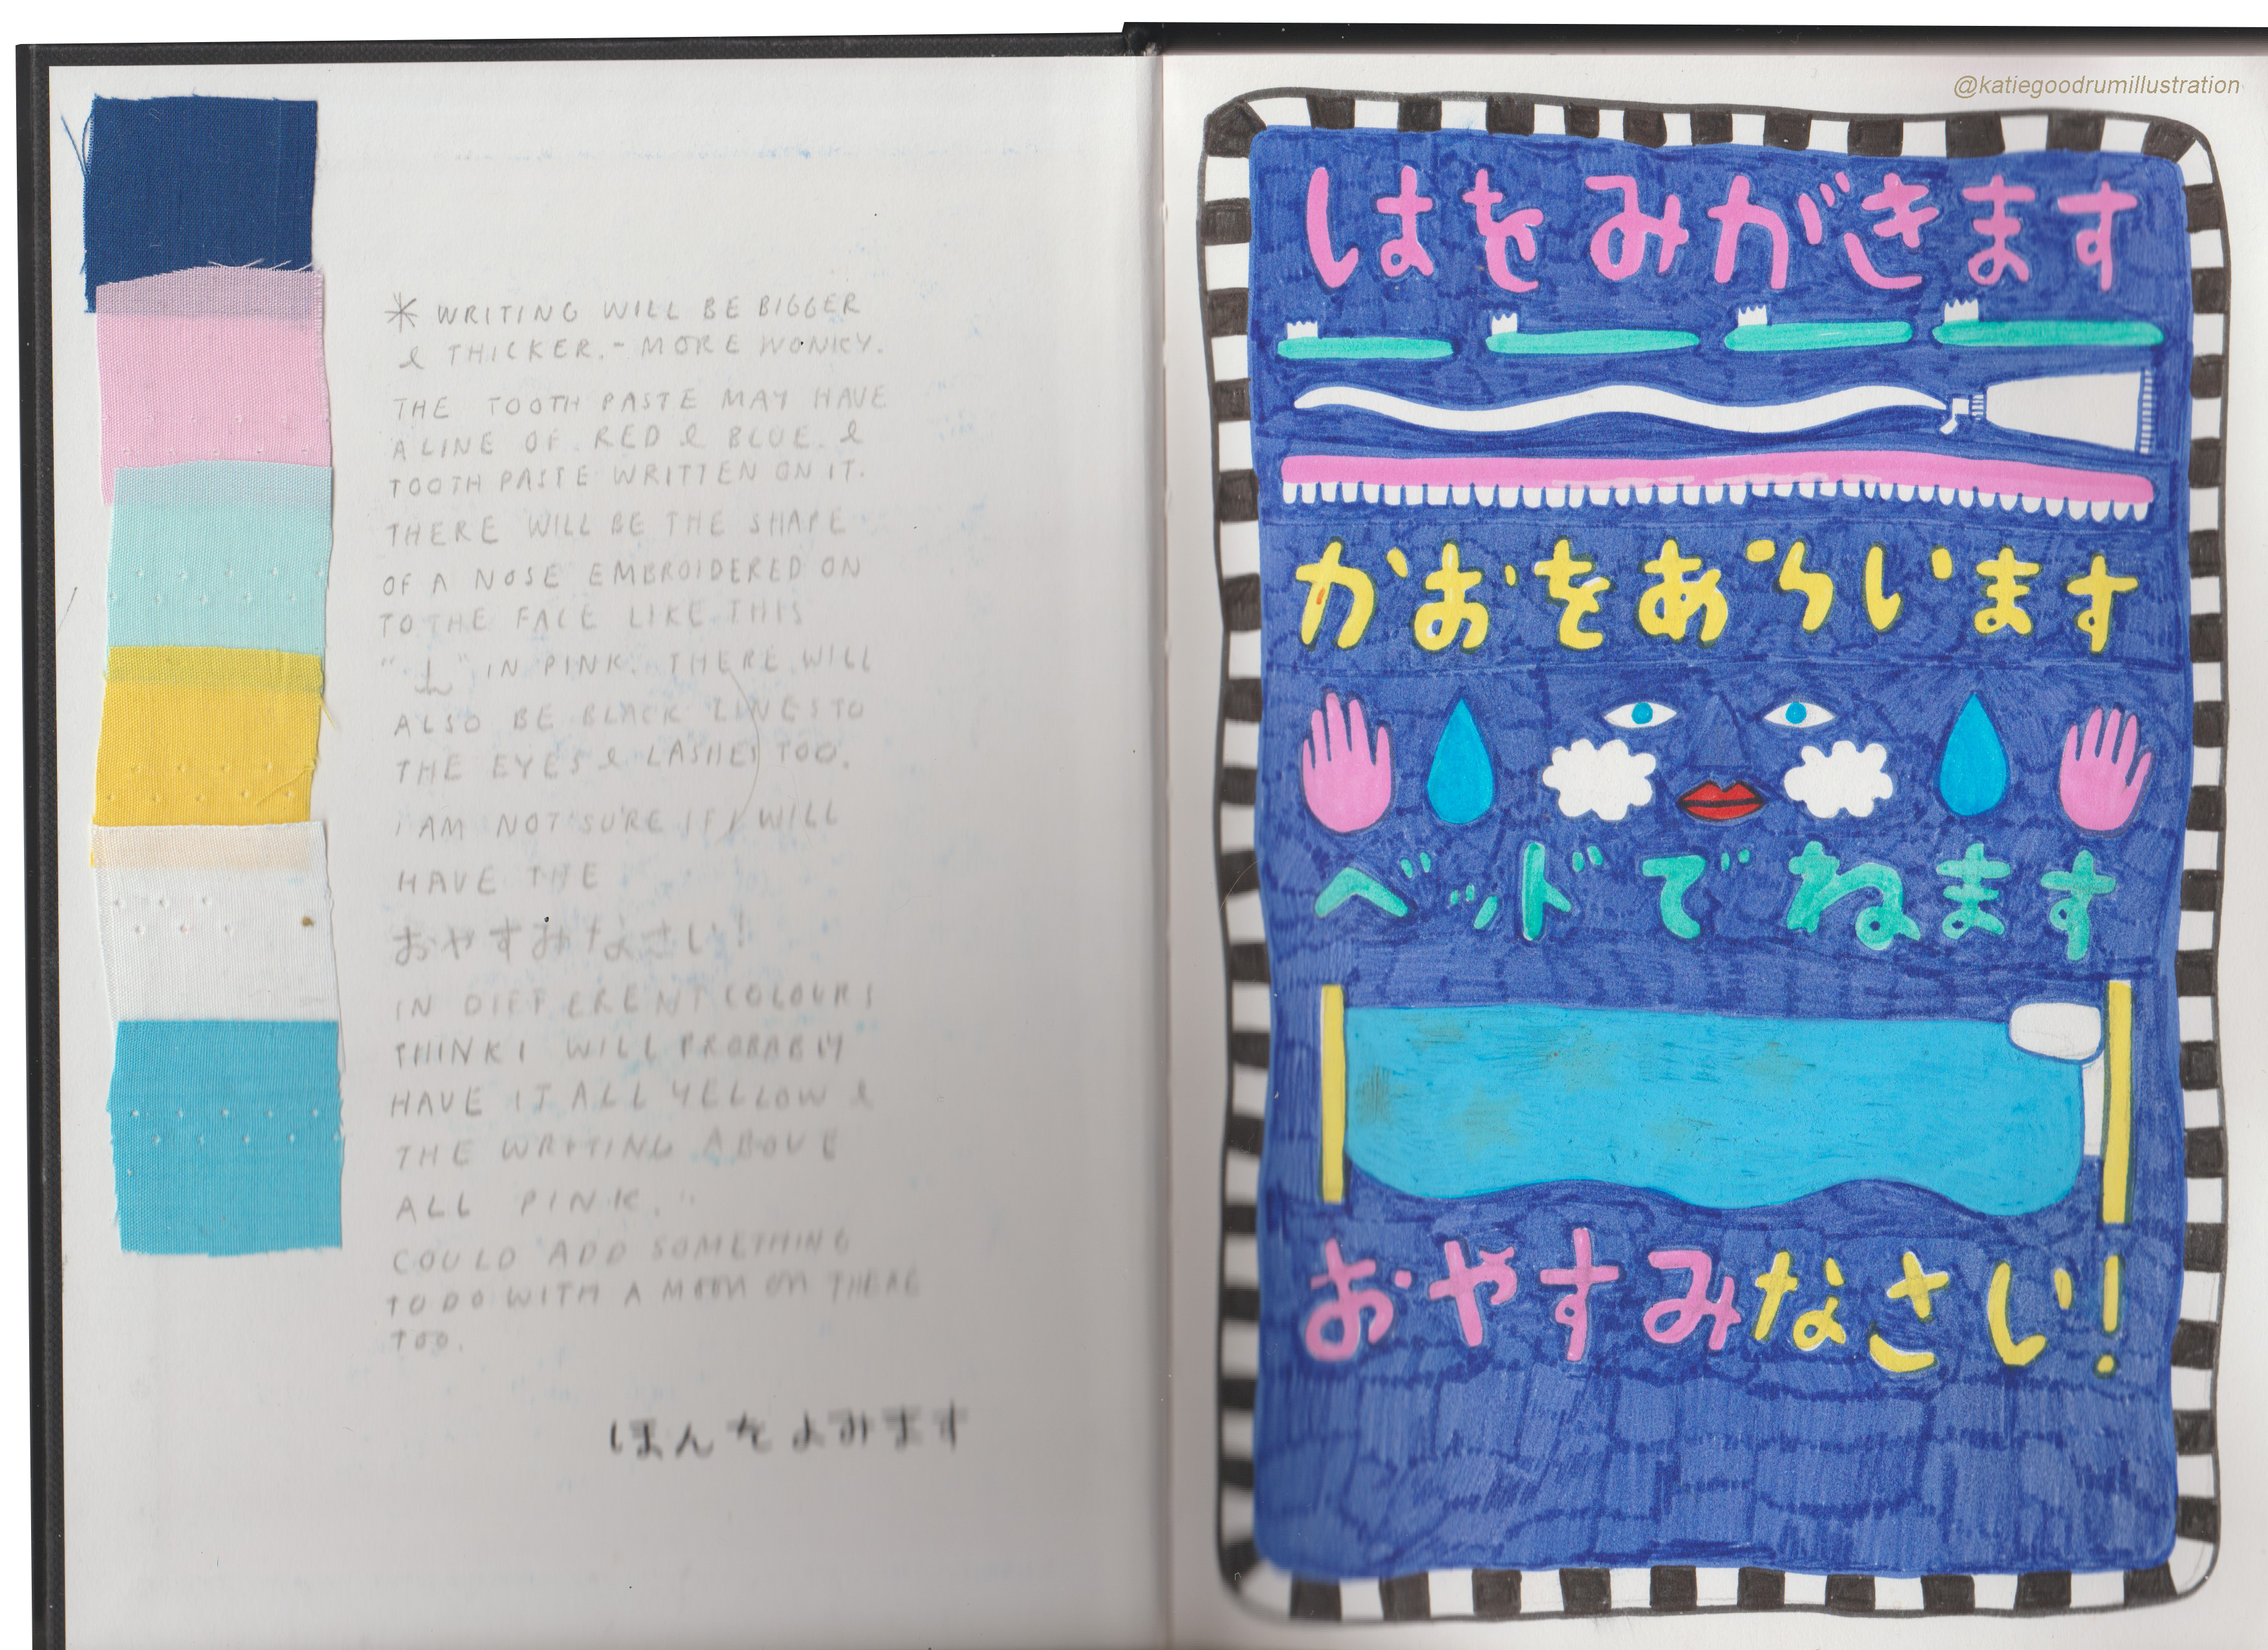 * WRITING WILL BE BIGGER
& THICKER. - MORE WONKY.
THE TOOTH PASTE MAY HAVE
A LINE OF RED & BLUE. &
TOOTH PASTE WRITTEN ON IT.
THERE WILL BE THE SHAPE
OF A NOSE EMBROIDERED ON
TO THE FACE LIKE THIS
" " IN PINK. THERE WILL
ALSO BE BLACK LINES TO
THE EYES & LASHES TOO.
I AM NOT SURE IF I WILL
HAVE THE
おやすみなさい!
IN DIFFERENT COLOURS
THINK I WILL PROBABLY
HAVE IT ALL YELLOW &
THE WRITING ABOVE
ALL PINK.
COULD ADD SOMETHING
TO DO WITH A MOON ON THERE
TOO.
ほんをよみます
@katiegoodrumillustration
はをみがきます
かおをあらいます
ベッドでねます
おやすみなさい!